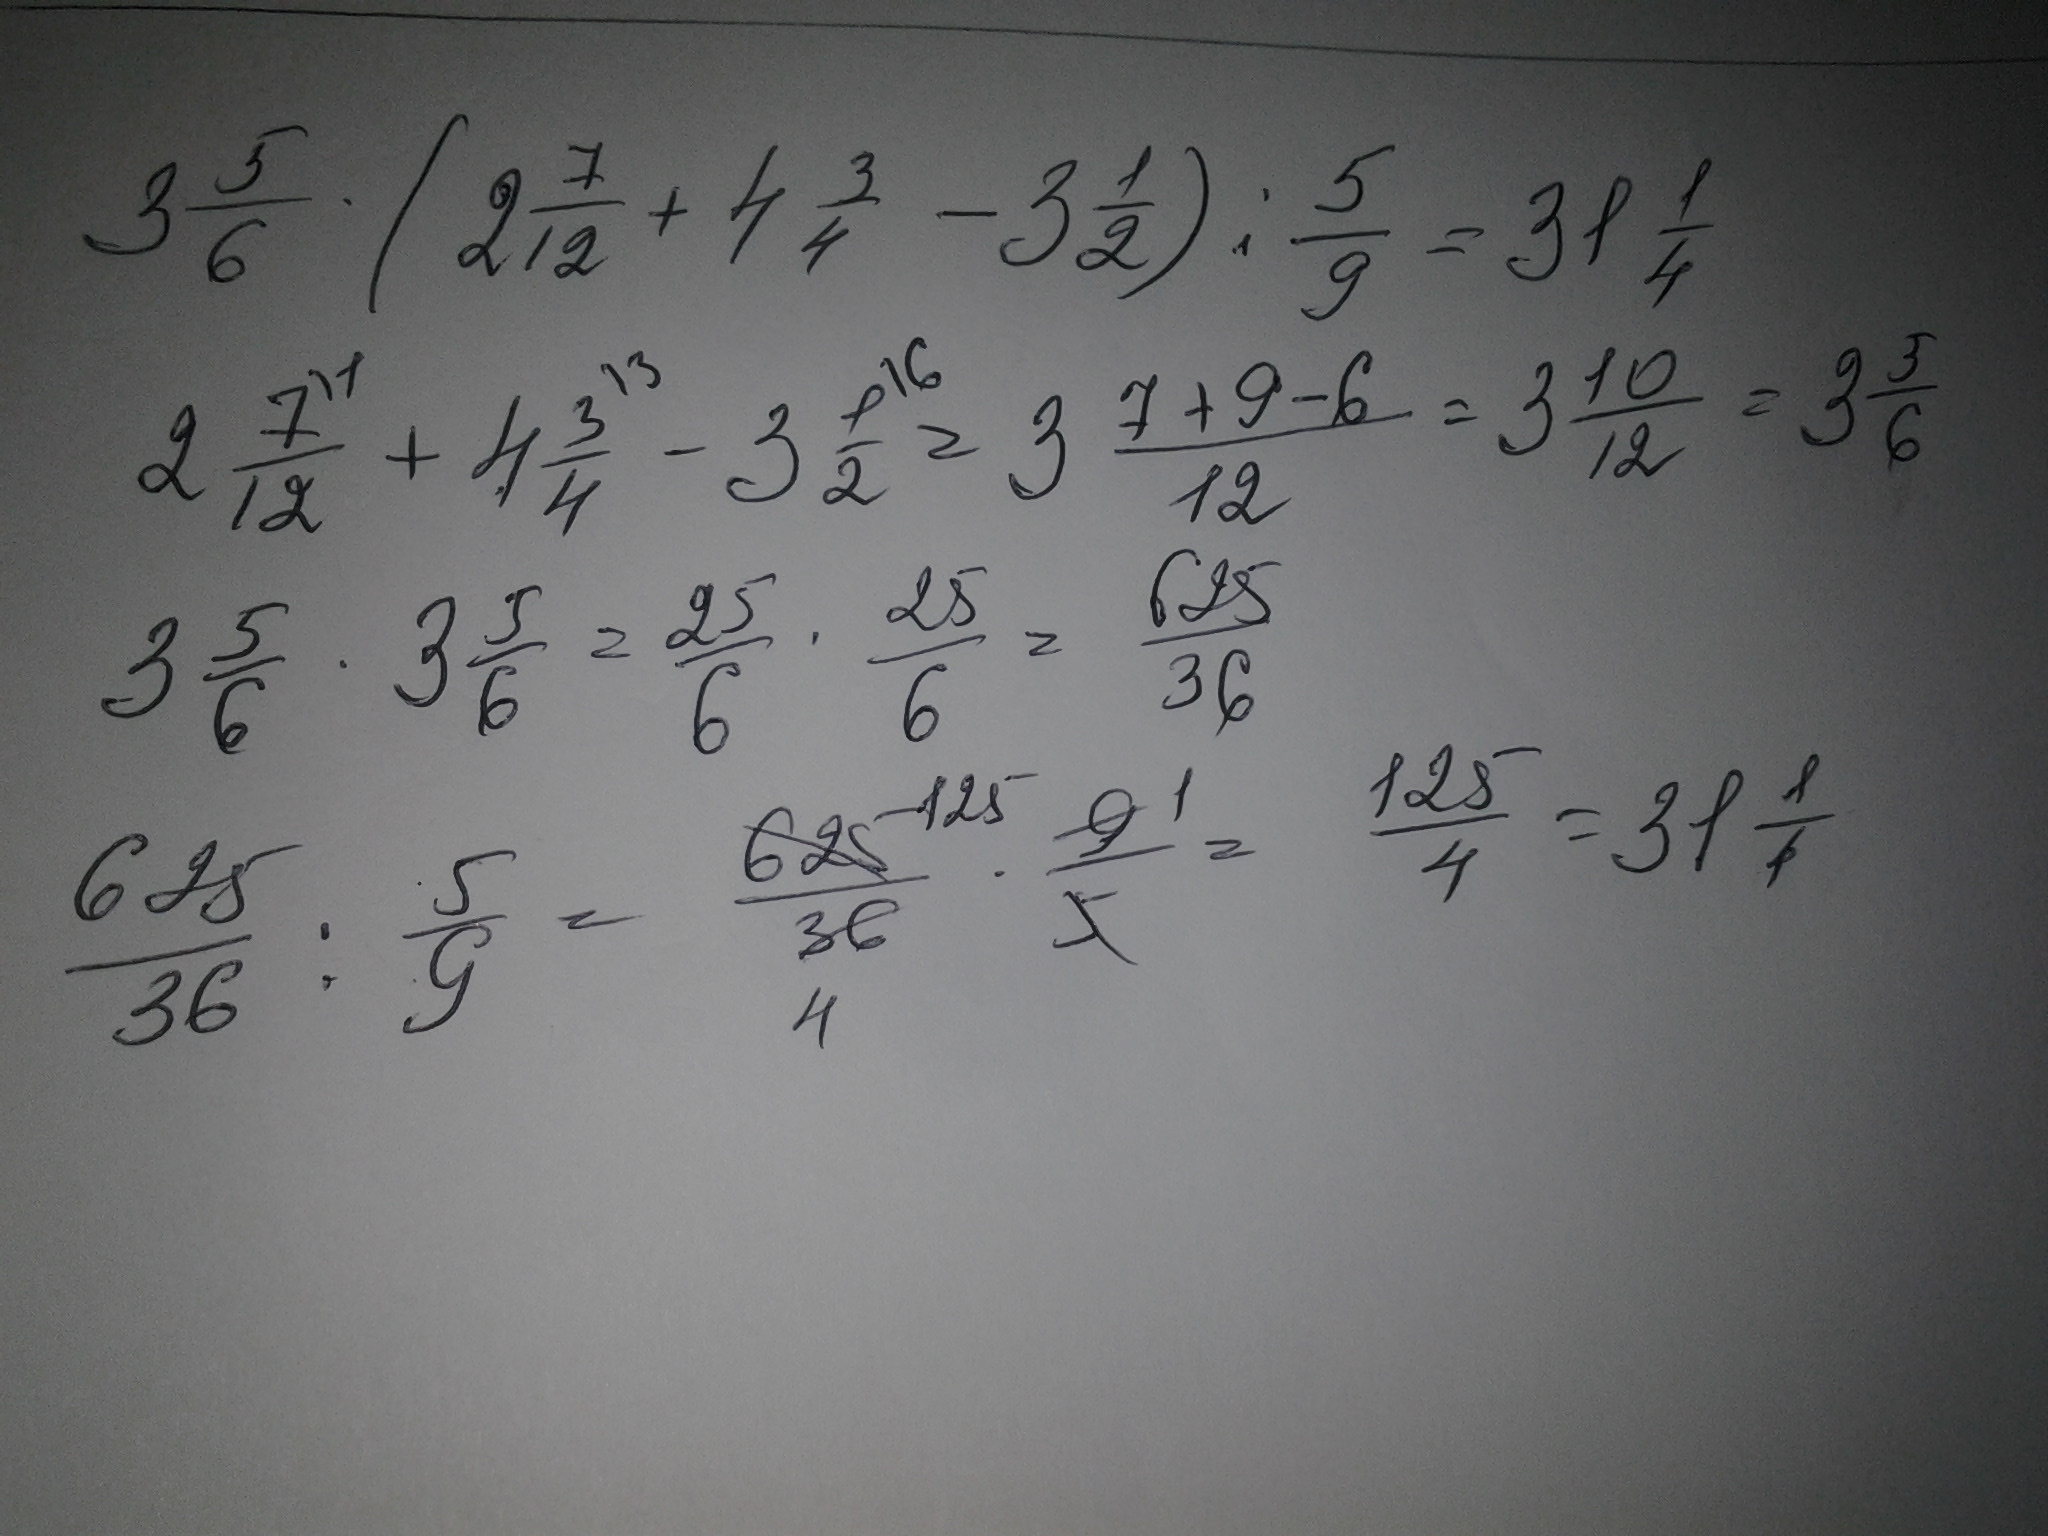 3 5/6 · (2 7/12 + 4 3/4 - 3 1/2) : 5/9 = 31 1/4
2 7\1/12 + 4 3\3/4 - 3 1\6/2 = 3 7+9-6/12 = 3 10/12 = 3 5/6
3 5/6 · 3 5/6 = 25/6 · 25/6 = 625/36
625/36 : 5/9 = 625 125/36 4 · 9 1/5 = 125/4 = 31 1/4